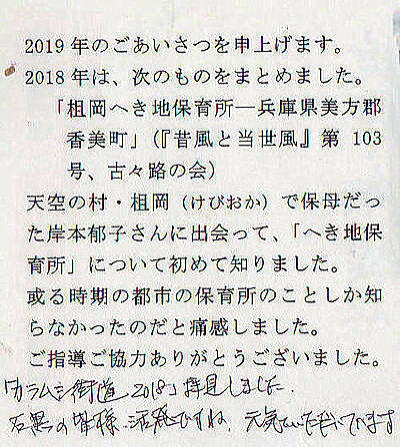 2019年のごあいさつを申上げます。
2018年は、次のものをまとめました。
「柤岡へき地保育所―兵庫県美方郡
香美町」(『昔風と当世風』第 103
号、古々路の会)
天空の村・柤岡(けびおか)で保母だっ
た岸本郁子さんに出会って、「へき地保
育所」について初めて知りました。
或る時期の都市の保育所のことしか知
らなかったのだと痛感しました。
ご指導ご協力ありがとうございました。
「カラムシ街道2018」拝見しました.
の皆様、活発ですね、元気でいただいています